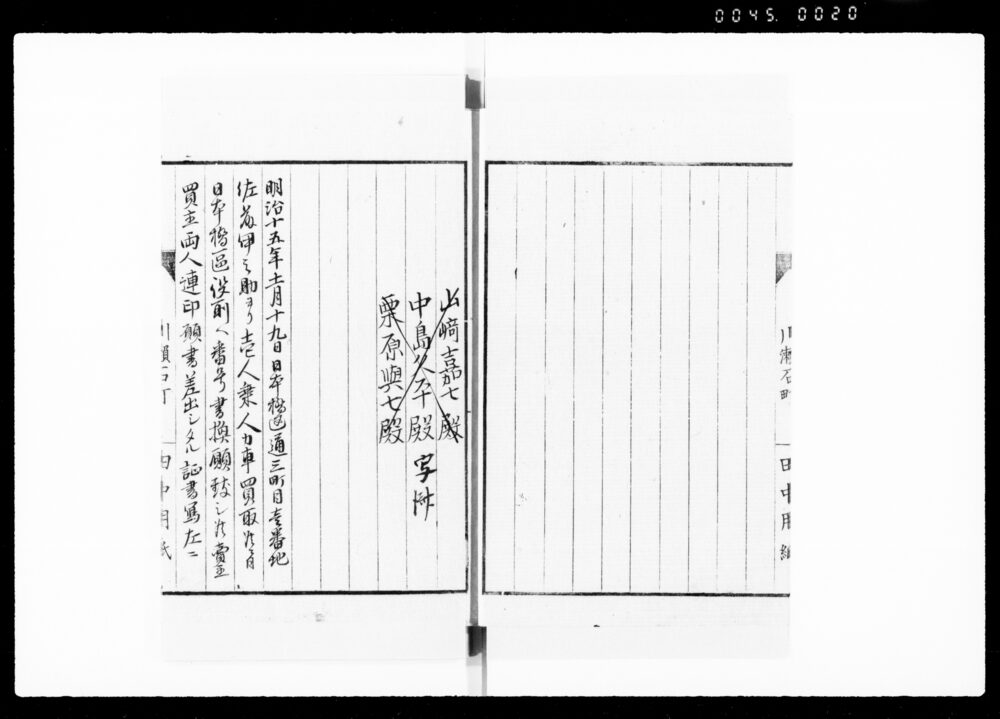 0045. 0020
川瀬石町
田中用紙
山﨑嘉七殿
中島久平殿 写済
栗原與七殿
明治十五年十一月十九日日本橋区通三町目壱番地
佐藤甲之助ヨリ壱人乗人力車買取候ニ付
日本橋區役所ヘ番号書換願致シ候賣主
買主両人連印願書差出シタル証書写左ニ
川瀬石町
田中用紙